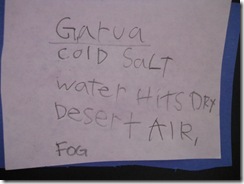 Garua
COLD SaLT
water HiTS DRY
Desert AIR,
FOG